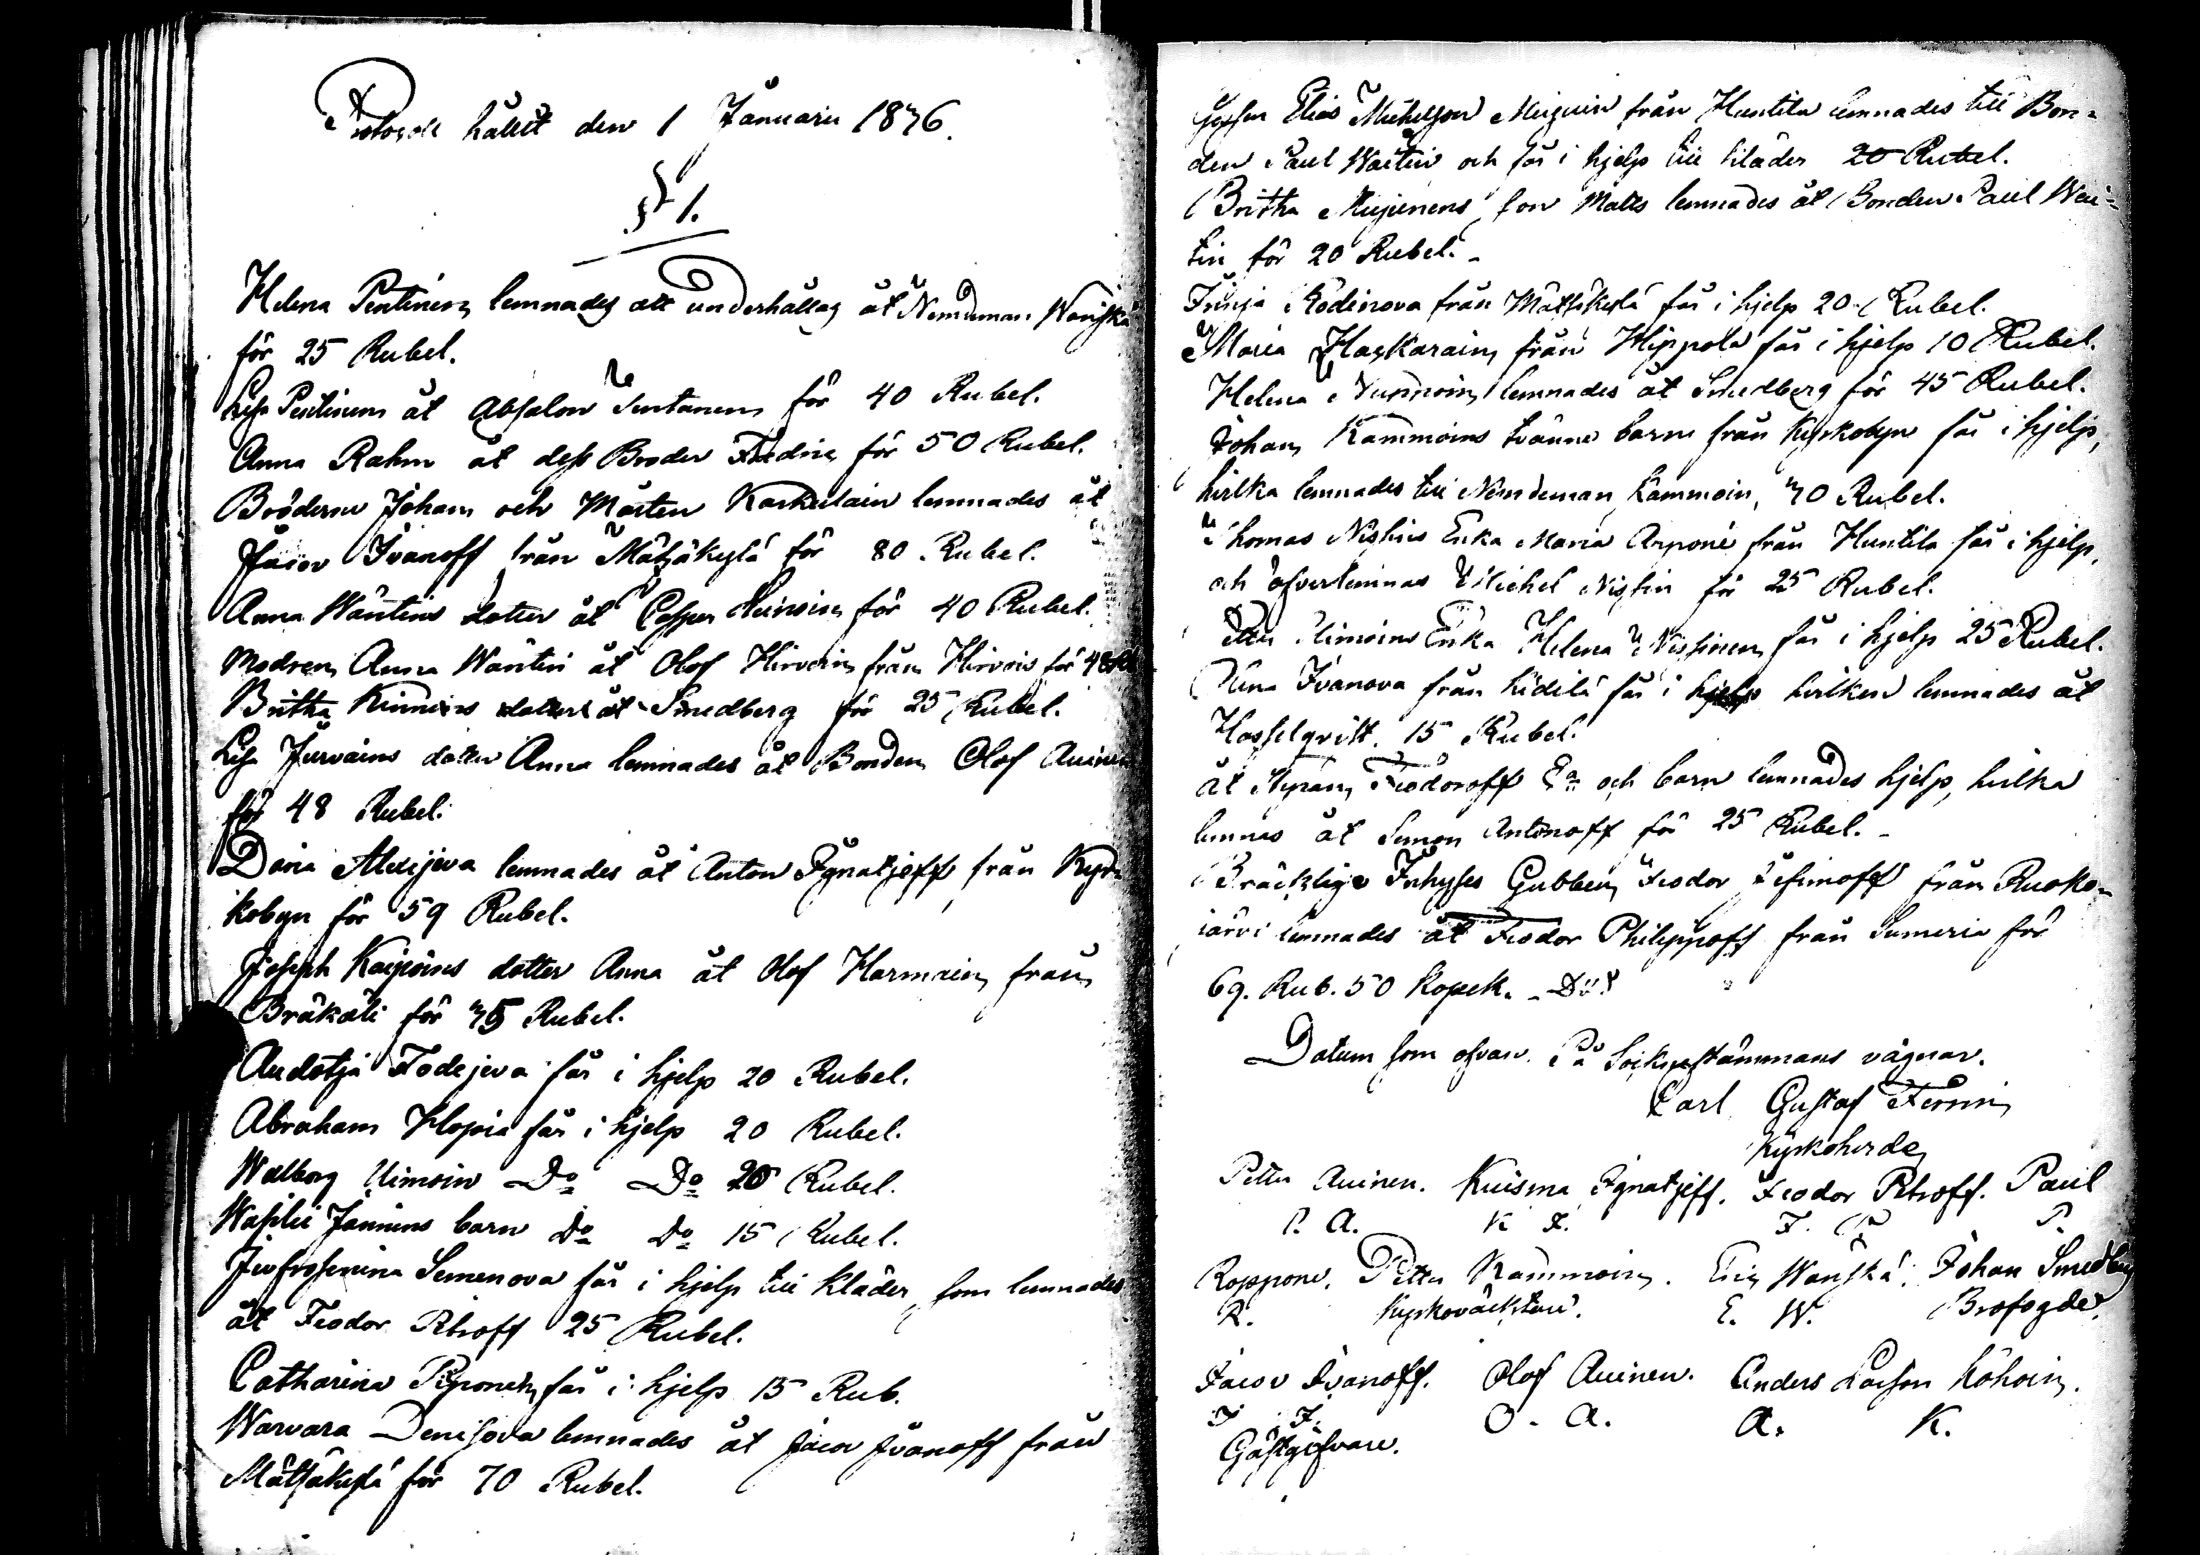 Protocoll hållit den 1 Januarii 1836.
§ 1.
Helena Pentinen lemnades att underhållas åt Nemdeman Wanska
för 25 Rubel.
Lisa Pentinens åt Absalon Suntanen för 40 Rubel.
Anna Rahm åt dess Broder Fredric för 50 Rubel.
Bröderne Johan och Mårten Karhulain lemnades åt
Jacov Ivanoff från Mätsäkylä för 80 Rubel.
Anna Wäntins dotter åt Casper Heinoin för 40 Rubel.
Modren Anna Wäntin åt Olof Hirvoin från Hirvois för 48 Rb
Britha Kinnins dotter åt Smedberg för 25 Rubel.
Lisa Jurvains dotter Anna lemnades åt Bonden Olof Auinen
för 48 Rubel.
Daria Alexijeva lemnades åt Anton Ignatjeff från Kyr-
kobyn för 59 Rubel.
Joseph Kaipoins dotter Anna åt Olof Harmain från
Bräkäli för 75 Rubel.
Audotja Fodejeva får i hjelp 20 Rubel.
Abraham Hopia får i hjelp 20 Rubel.
Walborg Uimoin Do Do 20 Rubel.
Wasilii Jannins barn Do Do 15 Rubel.
Jevfrosenina Semenova får i hjelp till kläder, som lemnades
åt Feodor Petroff 25 Rubel.
Catharina Piponen får i hjelp 15 Rub.
Warvara Denisova lemnades åt Jacov Ivanoff från
Mätsäkylä för 70 Rubel.
Gossen Elias Michelson från Huntila lemnades till Bon-
den Paul Waitin och får i hjelp till kläder 20 Rubel.
Britha son Matts lemnades åt Bonden Paul Wai-
tin för 20 Rubel.
Irinja Rodinova från Mätsäkylä får i hjelp 20 Rubel.
Maria Haskarain från Hippola får i hjelp 10 Rubel.
Helena lemnades åt Smedberg för 45 Rubel.
Johan Kammoins tvänne barn från Kyrkobyn får i hjelp,
hvilka lemnades till Nemdeman Kammoin, 70 Rubel.
Thomas Nissins Enka Maria Arponé från Huntila får i hjelp,
och öfverlemnas Michel Nissin för 25 Rubel.
Petter Enka Helena Nissinen får i hjelp 25 Rubel.
Ivanova från Kidilä får i hjelp hvilken lemnades åt
Hasselqvist. 15 Rubel.
åt Feodoroff Ea och barn lemnades hjelp, hvilka
lemnas åt Simon Antonoff för 25 Rubel.
Bräcklige Inhyses Gubben Feodor Jefimoff från Ruoko-
järvi lemnades åt Feodor Philippoff från Sumeria för
69. Rub. 50 Kopek.
Datum som ofvan. På Socknestämmans vägnar.
Carl Gustaf
Kyrkoherde
Petter Auinen. Kuisma Ignatjeff. Feodor Petroff. Paul
P. A. K I. F. P. P.
Roppone. Petter Kammoin. Eric Wanska. Johan Smedberg
R. Kyrkoväktare. E. W. Brofogde.
Jacov Ivanoff. Olof Auinen. Anders Larsson Kohoin.
J I. O. A. A. K.
Gästgifvare.